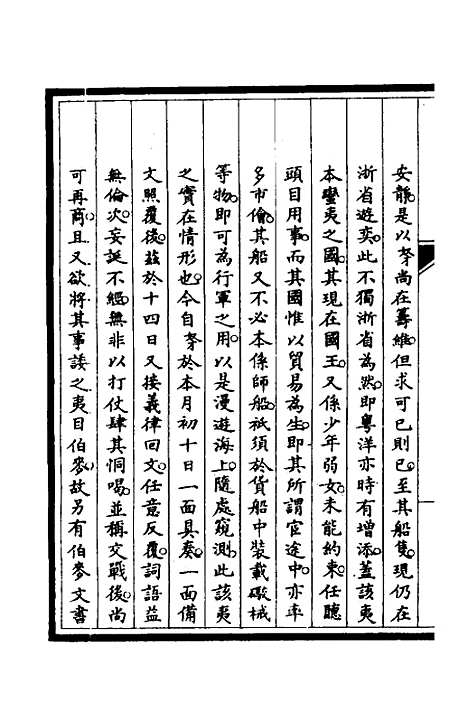 安靜是以拏尚在籌維但求可已則已至其船隻現仍在
浙省遊奕此不獨浙省為然即粵洋亦時有增添蓋該夷
本蠻夷之國其現在國王又係少年弱女未能約束任聽
頭目用事而其國惟以貿易為生即其所謂官途中亦率
多市儈其船又不必本係師船祇須於貨船中裝載礮械
等物即可為行軍之用以是漫遊海上隨處窺測此該夷
之實在情形也今自拏於本月初十日一面具奏一面備
文照覆後茲於十四日又接義律回文任意反覆詞語益
無倫次妄誕不經無非以打仗肆其恫喝並稱交戰後尚
可再商且又欲將其事諉之夷目伯麥故另有伯麥文書